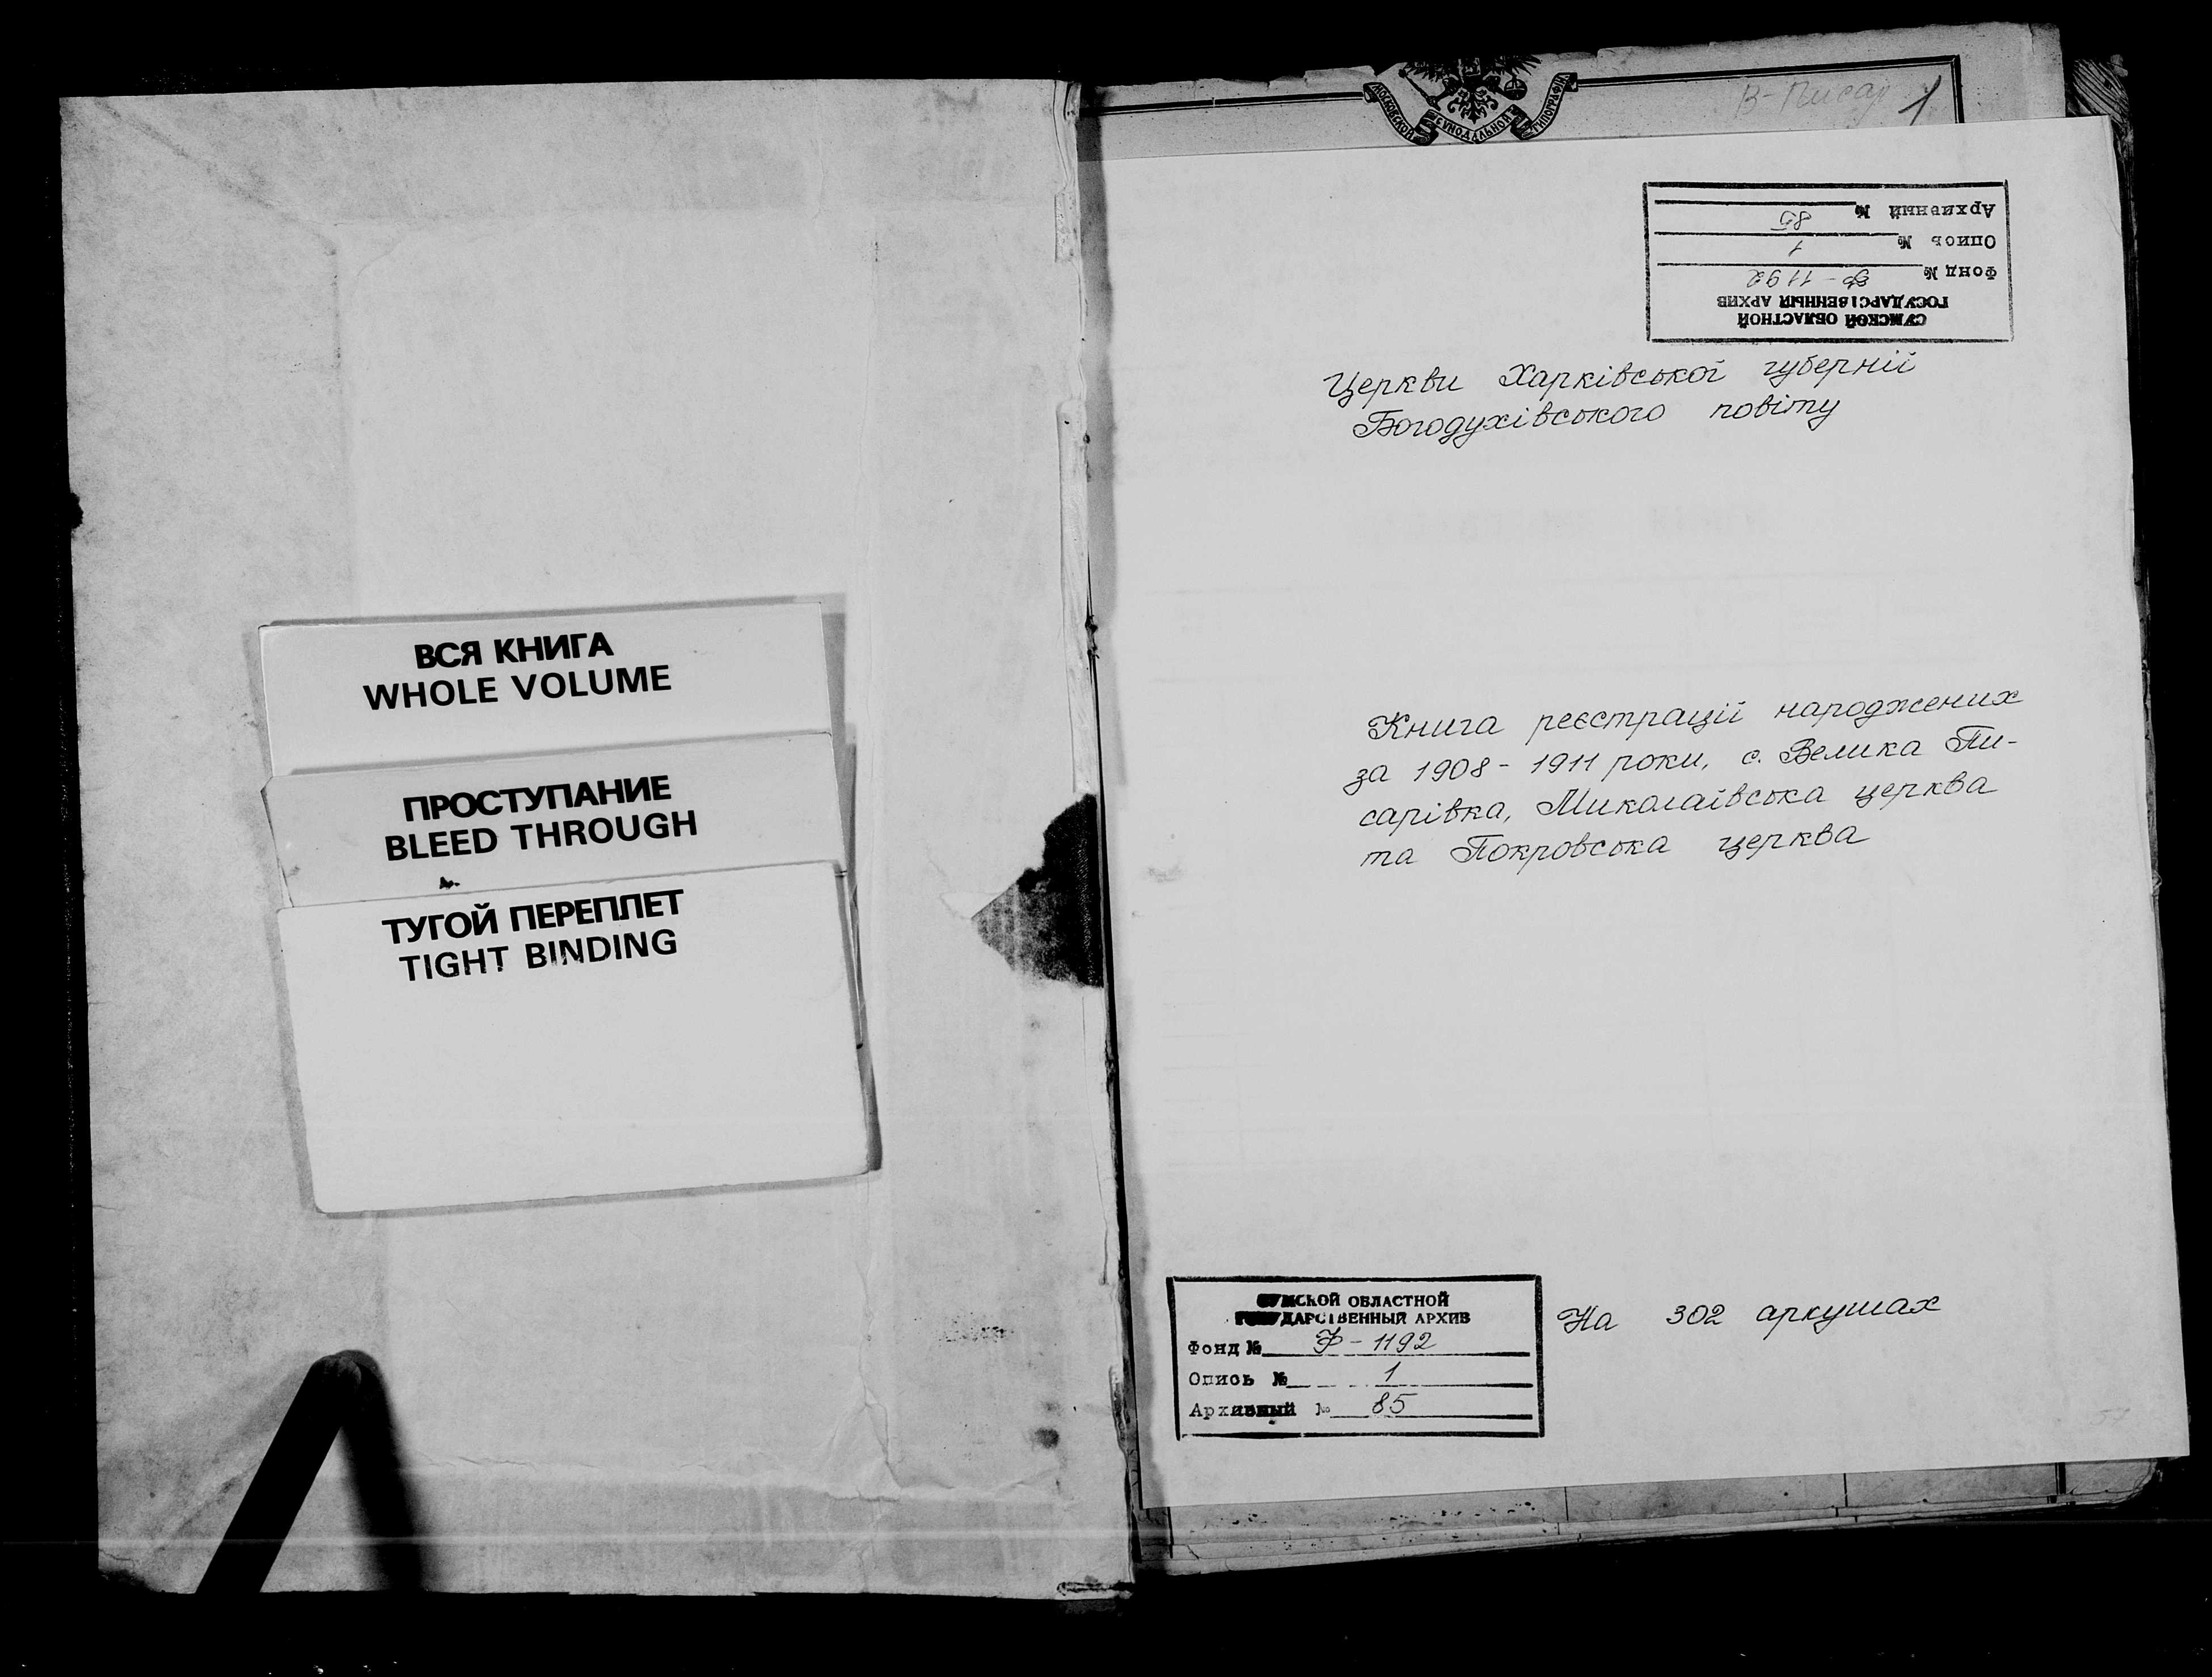 ВСЯ КНИГА
WHOLE VOLUME
ПРОСТУПАНИЕ
BLEED THROUGH
ТУГОЙ ПЕРЕПЛЕТ
TIGHT BINDING
МОСКОВСКОЙ СѴНОДАЛЬНОЙ ТИПОГРАФІИ
В-Писар 1
СУМСКОЙ ОБЛАСТНОЙ
ГОСУДАРСТВЕННЫЙ АРХИВ
Фонд № Ф-1192
Опись № 1
Архивный № 85
Церкви Харківської губернії
Богодухівського повіту
Книга реєстрації народжених
за 1908-1911 роки, с. Велика Пи-
сарівка, Миколаївська церква
та Покровська церква
СУМСКОЙ ОБЛАСТНОЙ
ГОСУДАРСТВЕННЫЙ АРХИВ
Фонд № Ф-1192
Опись № 1
Архивный № 85
На 302 аркушах